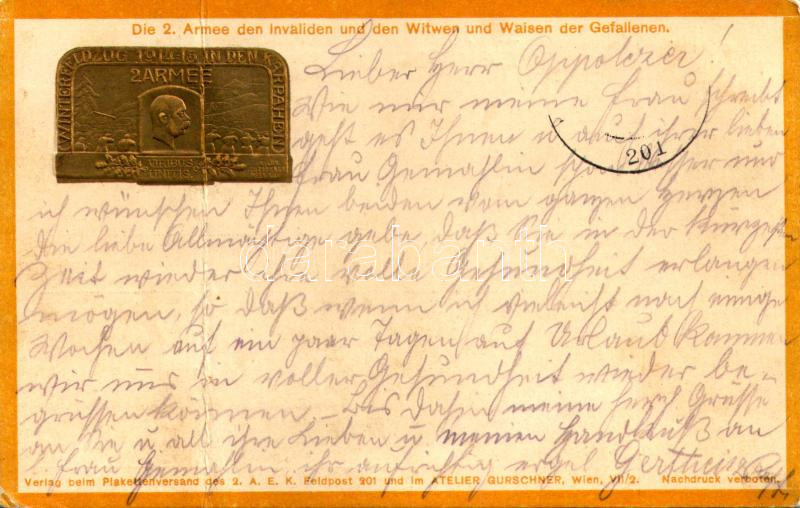 Die 2. Armee den Invaliden und den Witwen und Waisen der Gefallenen.
WINTERFELDZUG 1914-15 IN DEN KARPATHEN
2. ARMEE
VIRIBUS UNITIS
201
Lieber Herr Oppolzer!
Wie mir meine Frau schreibt
geht es Ihnen u auch ihrer lieben
Frau Gemahlin schon besser und
ich wünschen Ihnen beiden vom ganzen Herzen
Die liebe Allmächtige gebe, daß Sie in der kürzesten
Zeit wieder ihre volle Gesundheit erlangen
mögen, so daß wenn ich vielleicht nach einige
Wochen auf ein paar Tagen auf Urlaub kommen
wir uns in voller Gesundheit wieder be-
grüssen können. Bis dahin meine herzl Grüsse
an Sie u all ihre Lieben u meinen Handkuß an
l. Frau Gemahlin ihr aufrichtig ergel
darabanth
Verlag beim Plakettenversand des 2. A. E. K. Feldpost 201 und im ATELIER GURSCHNER, Wien, VII/2. Nachdruck verboten.